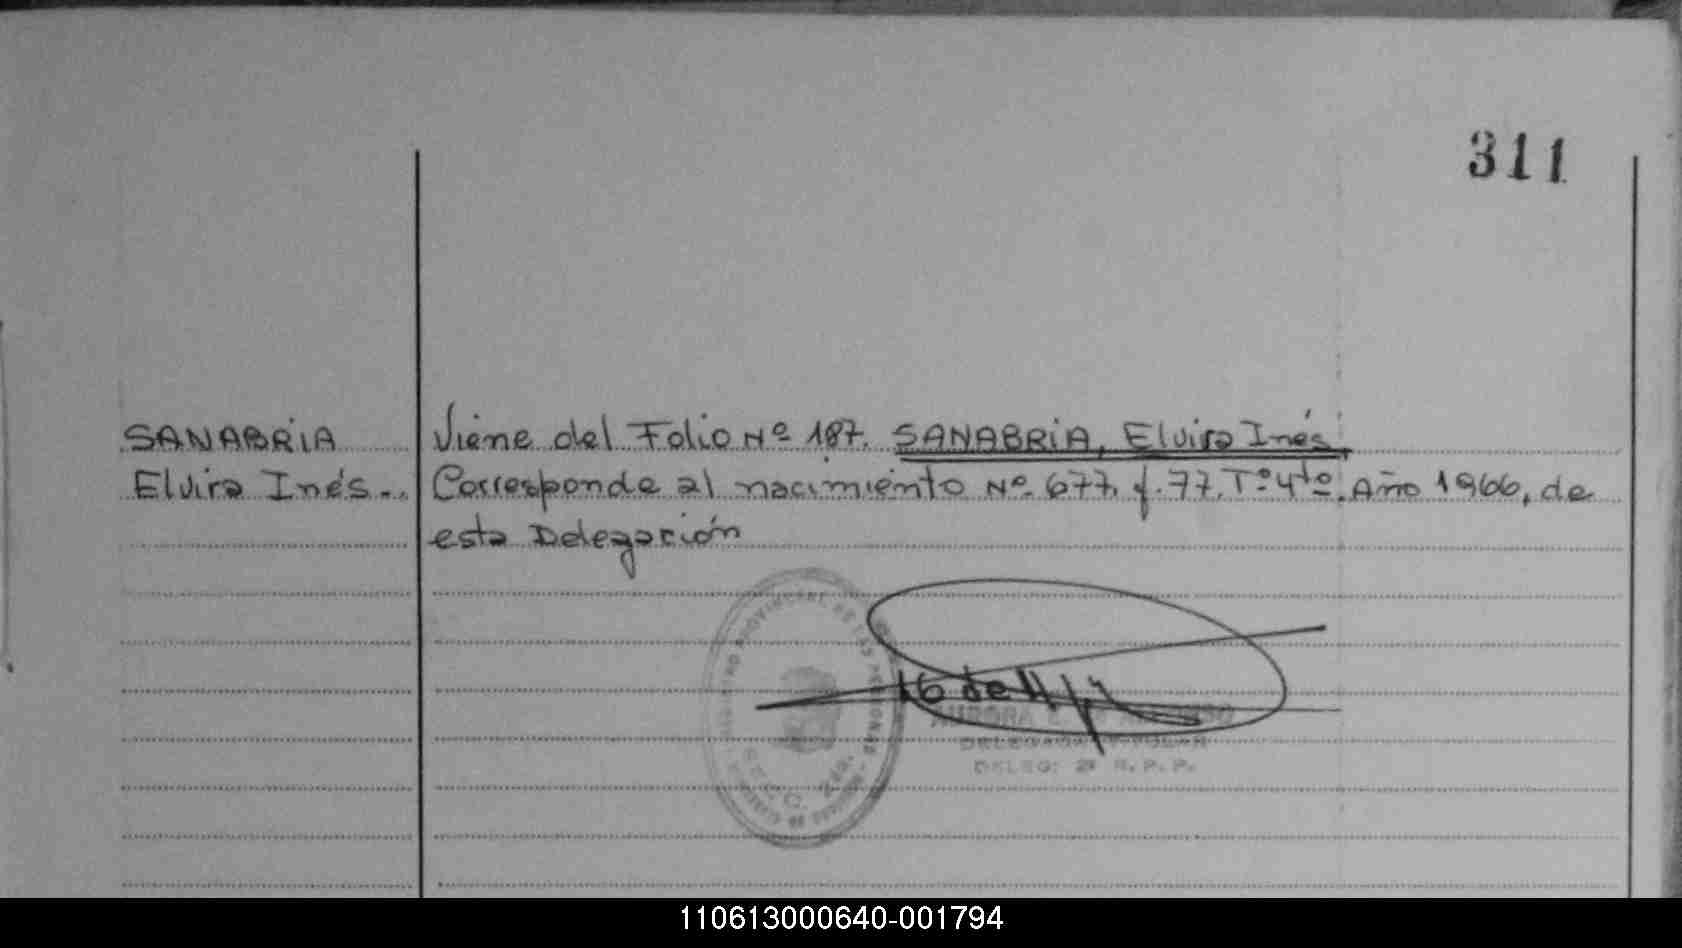 311
SANABRIA
Elvira Inés...
Viene del Folio Nº 187. SANABRIA, Elvira Inés.
Corresponde al nacimiento Nº 677, f. 77. Tº 4to. Año 1966, de
esta Delegación
16 de
AURORA
DELEGADA TITULAR
DELEG: 2ª R. P. P.
110613000640-001794